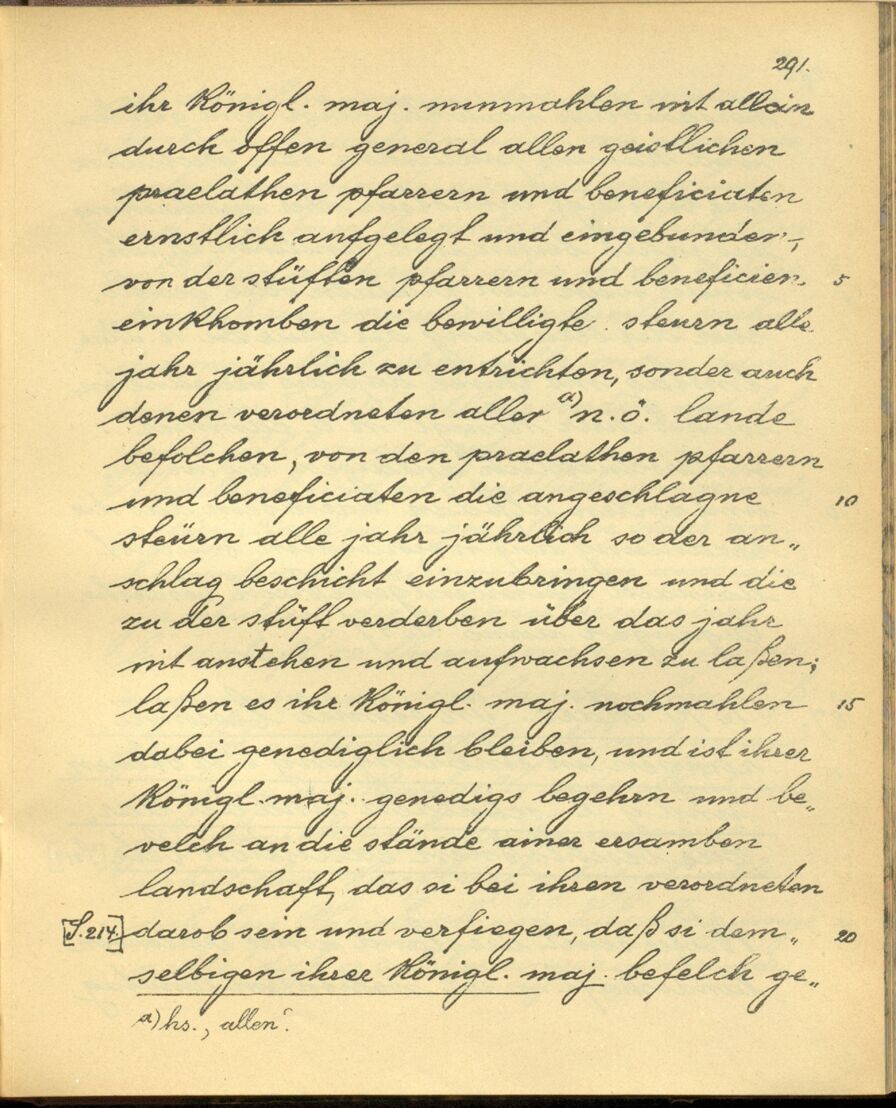 291.
ihr Königl. maj. nunmahlen nit allein
durch offen general allen geistlichen
praelathen pfarrern und beneficiaten
ernstlich aufgelegt und eingebunden,
von der stüften pfarrern und beneficien 5
einkhomben die bewilligte steurn alle
jahr jährlich zu entrichten, sonder auch
denen verordneten aller a) n. ö. lande
befolchen, von den praelathen pfarrern
und beneficiaten die angeschlagne 10
steürn alle jahr jährlich so der an„
schlag beschicht einzubringen und die
zu der stüft verderben über das jahr
nit anstehen und aufwachsen zu laßen;
laßen es ihr Königl. maj. nochmahlen 15
dabei genediglich bleiben, und ist ihrer
Königl. maj. genedigs begehrn und be„
velch an die stände ainer ersamben
landschaft, das si bei ihren verordneten
[S. 214.] darob sein und verfiegen, daß si dem„ 20
selbigen ihrer Königl. maj. befelch ge„
a) hs. „allen“.